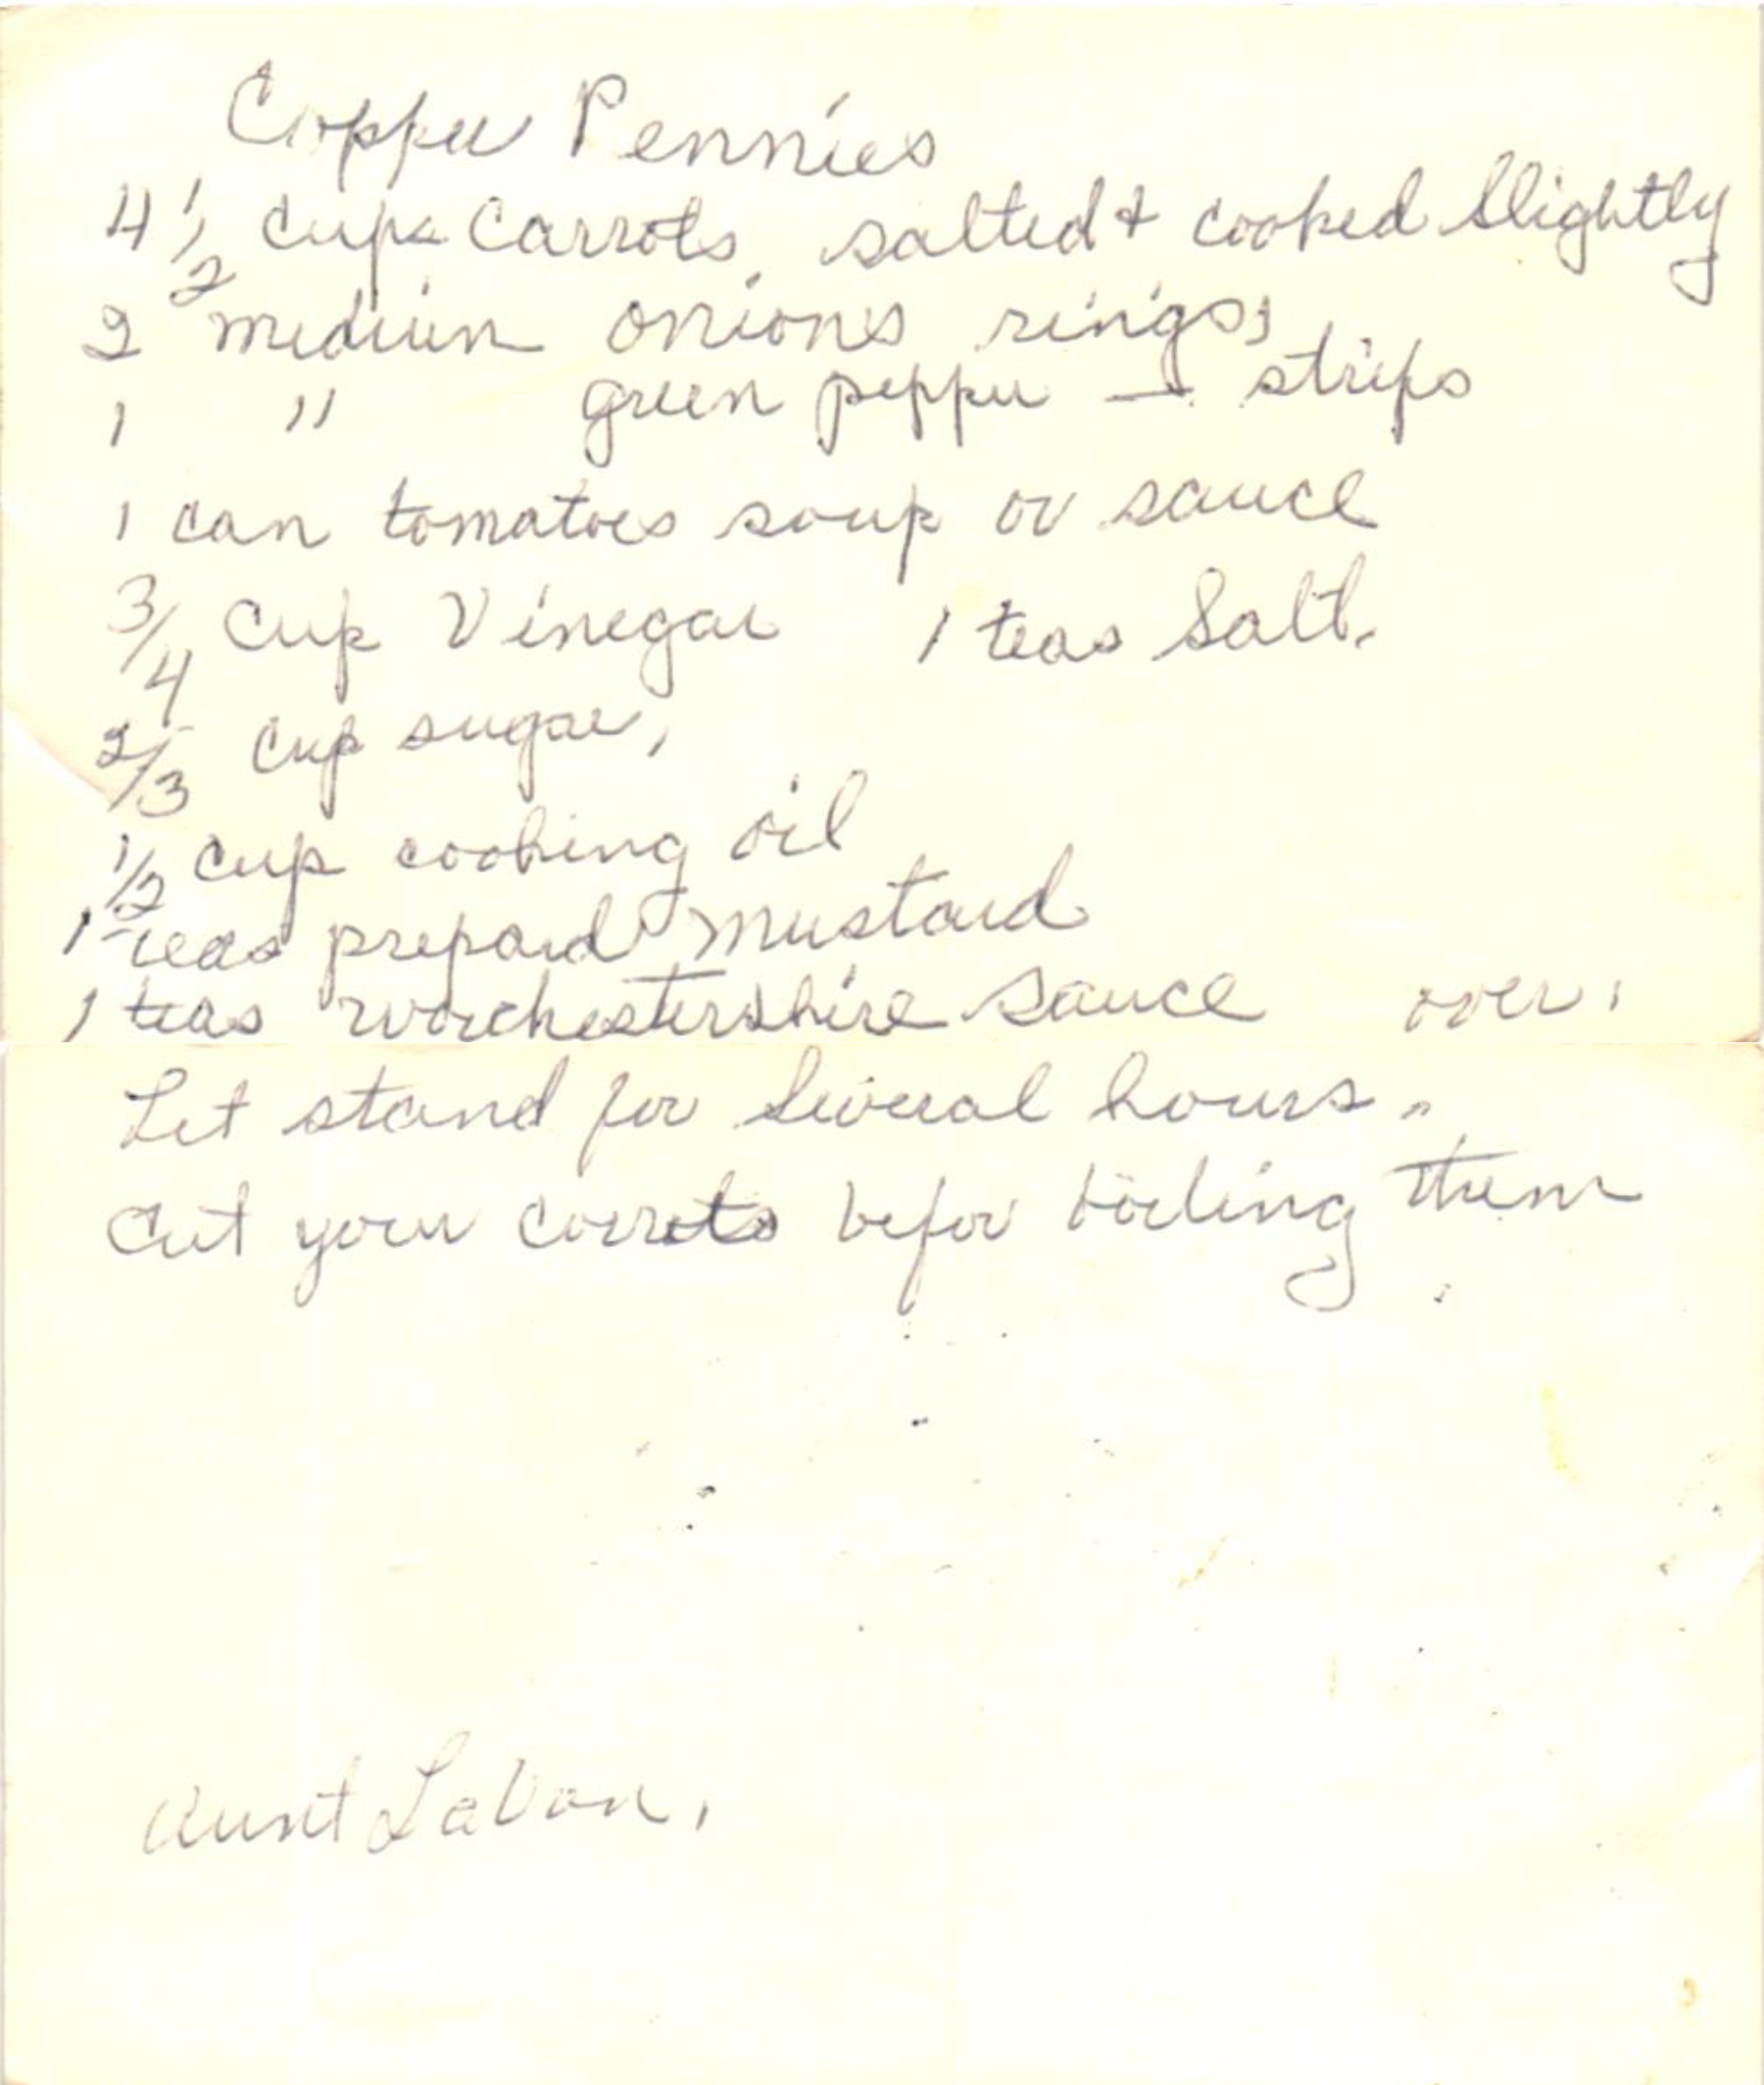 Copper Pennies
4 1/2 cups Carrots, salted & cooked slightly
2 medium onions rings,
1 " green pepper - strips
1 can tomatoes soup or sauce
3/4 Cup Vinegar 1 teas Salt.
2/3 Cup sugar,
1/2 Cup cooking oil
1 teas prepard mustard
1 teas worchestershire sauce over.
Let stand for several hours.
Cut your corrots befor boiling them
Aunt LaVon,